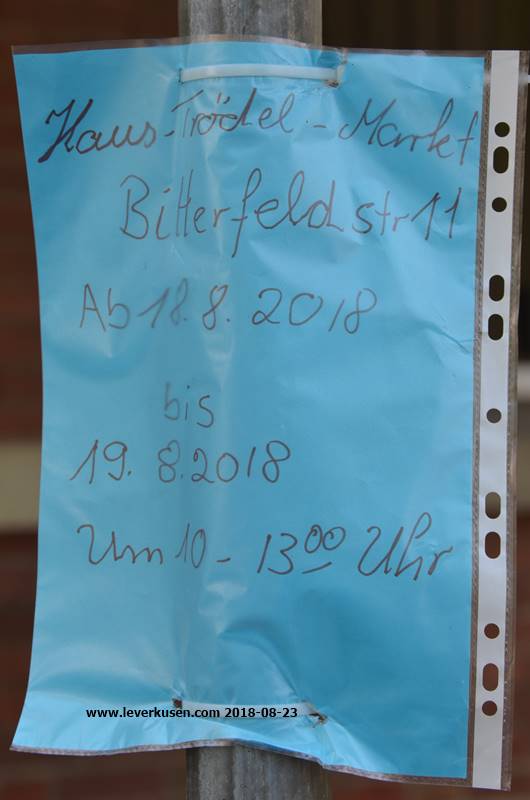 Haus-Trödel-Markt
Bitterfeldstr 11
Ab 18.8.2018
bis
19.8.2018
Um 10-13 00 Uhr
www.leverkusen.com 2018-08-23